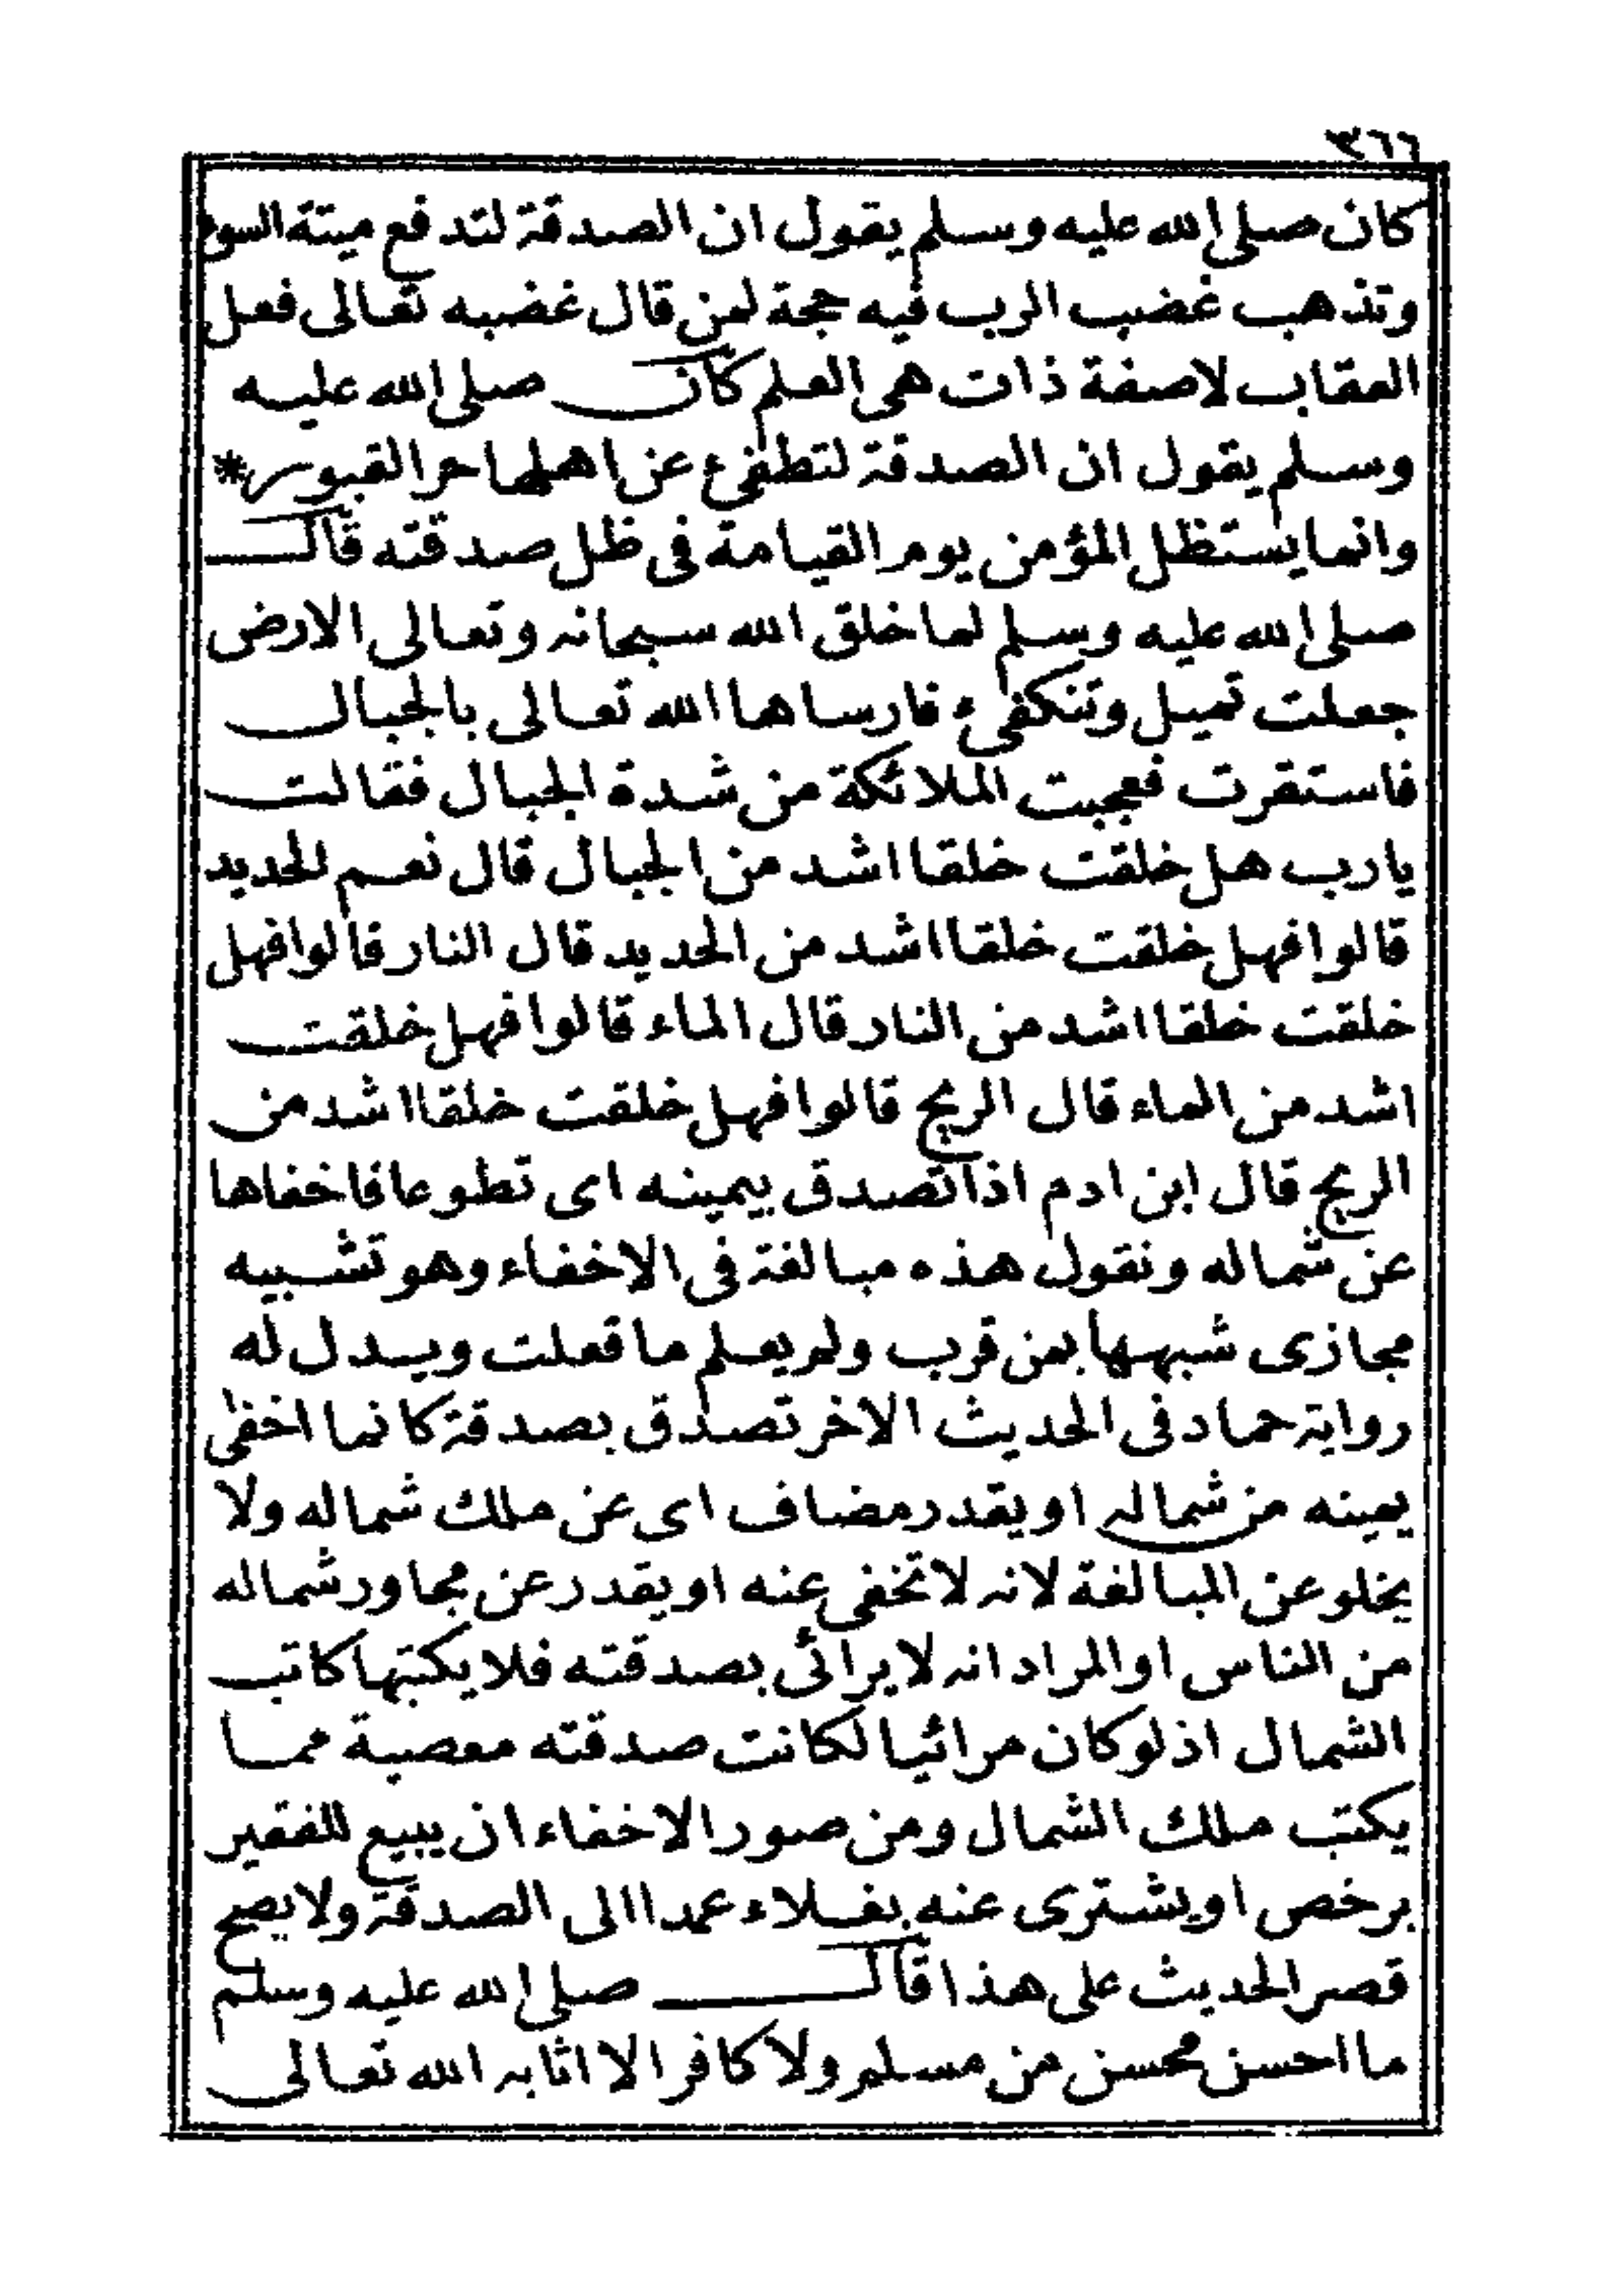 ٣٦٦
كان صلى الله عليه وسلم يقول ان الصدقة لتدفع ميتة السوء
وتذهب غضب الرب فيه حجة لمن قال غضبه تعالى فعل
العقاب لاصفة ذات هى العلم كان صلى الله عليه
وسلم يقول ان الصدقة لتطفئ عن اهلها حر القبور *
وانما يستظل المؤمن يوم القيامة فى ظل صدقته قال
صلى الله عليه وسلم لما خلق الله سبحانه وتعالى الارض
جعلت تميل وتنكفئ فارساها الله تعالى بالجبال
فاستقرت فعجبت الملائكة من شدة الجبال فقالت
يارب هل خلقت خلقا اشد من الجبال قال نعم الحديد
قالوا فهل خلقت خلقا اشد من الحديد قال النار قالوا فهل
خلقت خلقا اشد من النار قال الماء قالوا فهل خلقت
اشد من الماء قال الريح قالوا فهل خلقت خلقا اشد من
الريح قال ابن ادم اذا تصدق بيمينه اى تطوعا فاخفاها
عن شماله ونقول هذه مبالغة فى الاخفاء وهو تشبيه
مجازى شبهها بمن قرب ولم يعلم ما فعلت ويدل له
رواية حماد فى الحديث الاخر تصدق بصدقة كانما اخفى
يمينه من شماله او يقدر مضاف اى عن ملك شماله ولا
يخلو عن المبالغة لانه لا تخفى عنه او يقدر عن مجاور شماله
من الناس او المراد انه لا يرائى بصدقته فلا يكتبها كاتب
الشمال اذ لو كان مرائيا لكانت صدقته معصية مما
يكتب ملك الشمال ومن صور الاخفاء ان يبيع للفقير
برخص او يشترى عنه بغلاء عمدا الى الصدقة ولا يصح
قصر الحديث على هذا قال صلى الله عليه وسلم
ما احسن محسن من مسلم ولا كافر الا اثابه الله تعالى